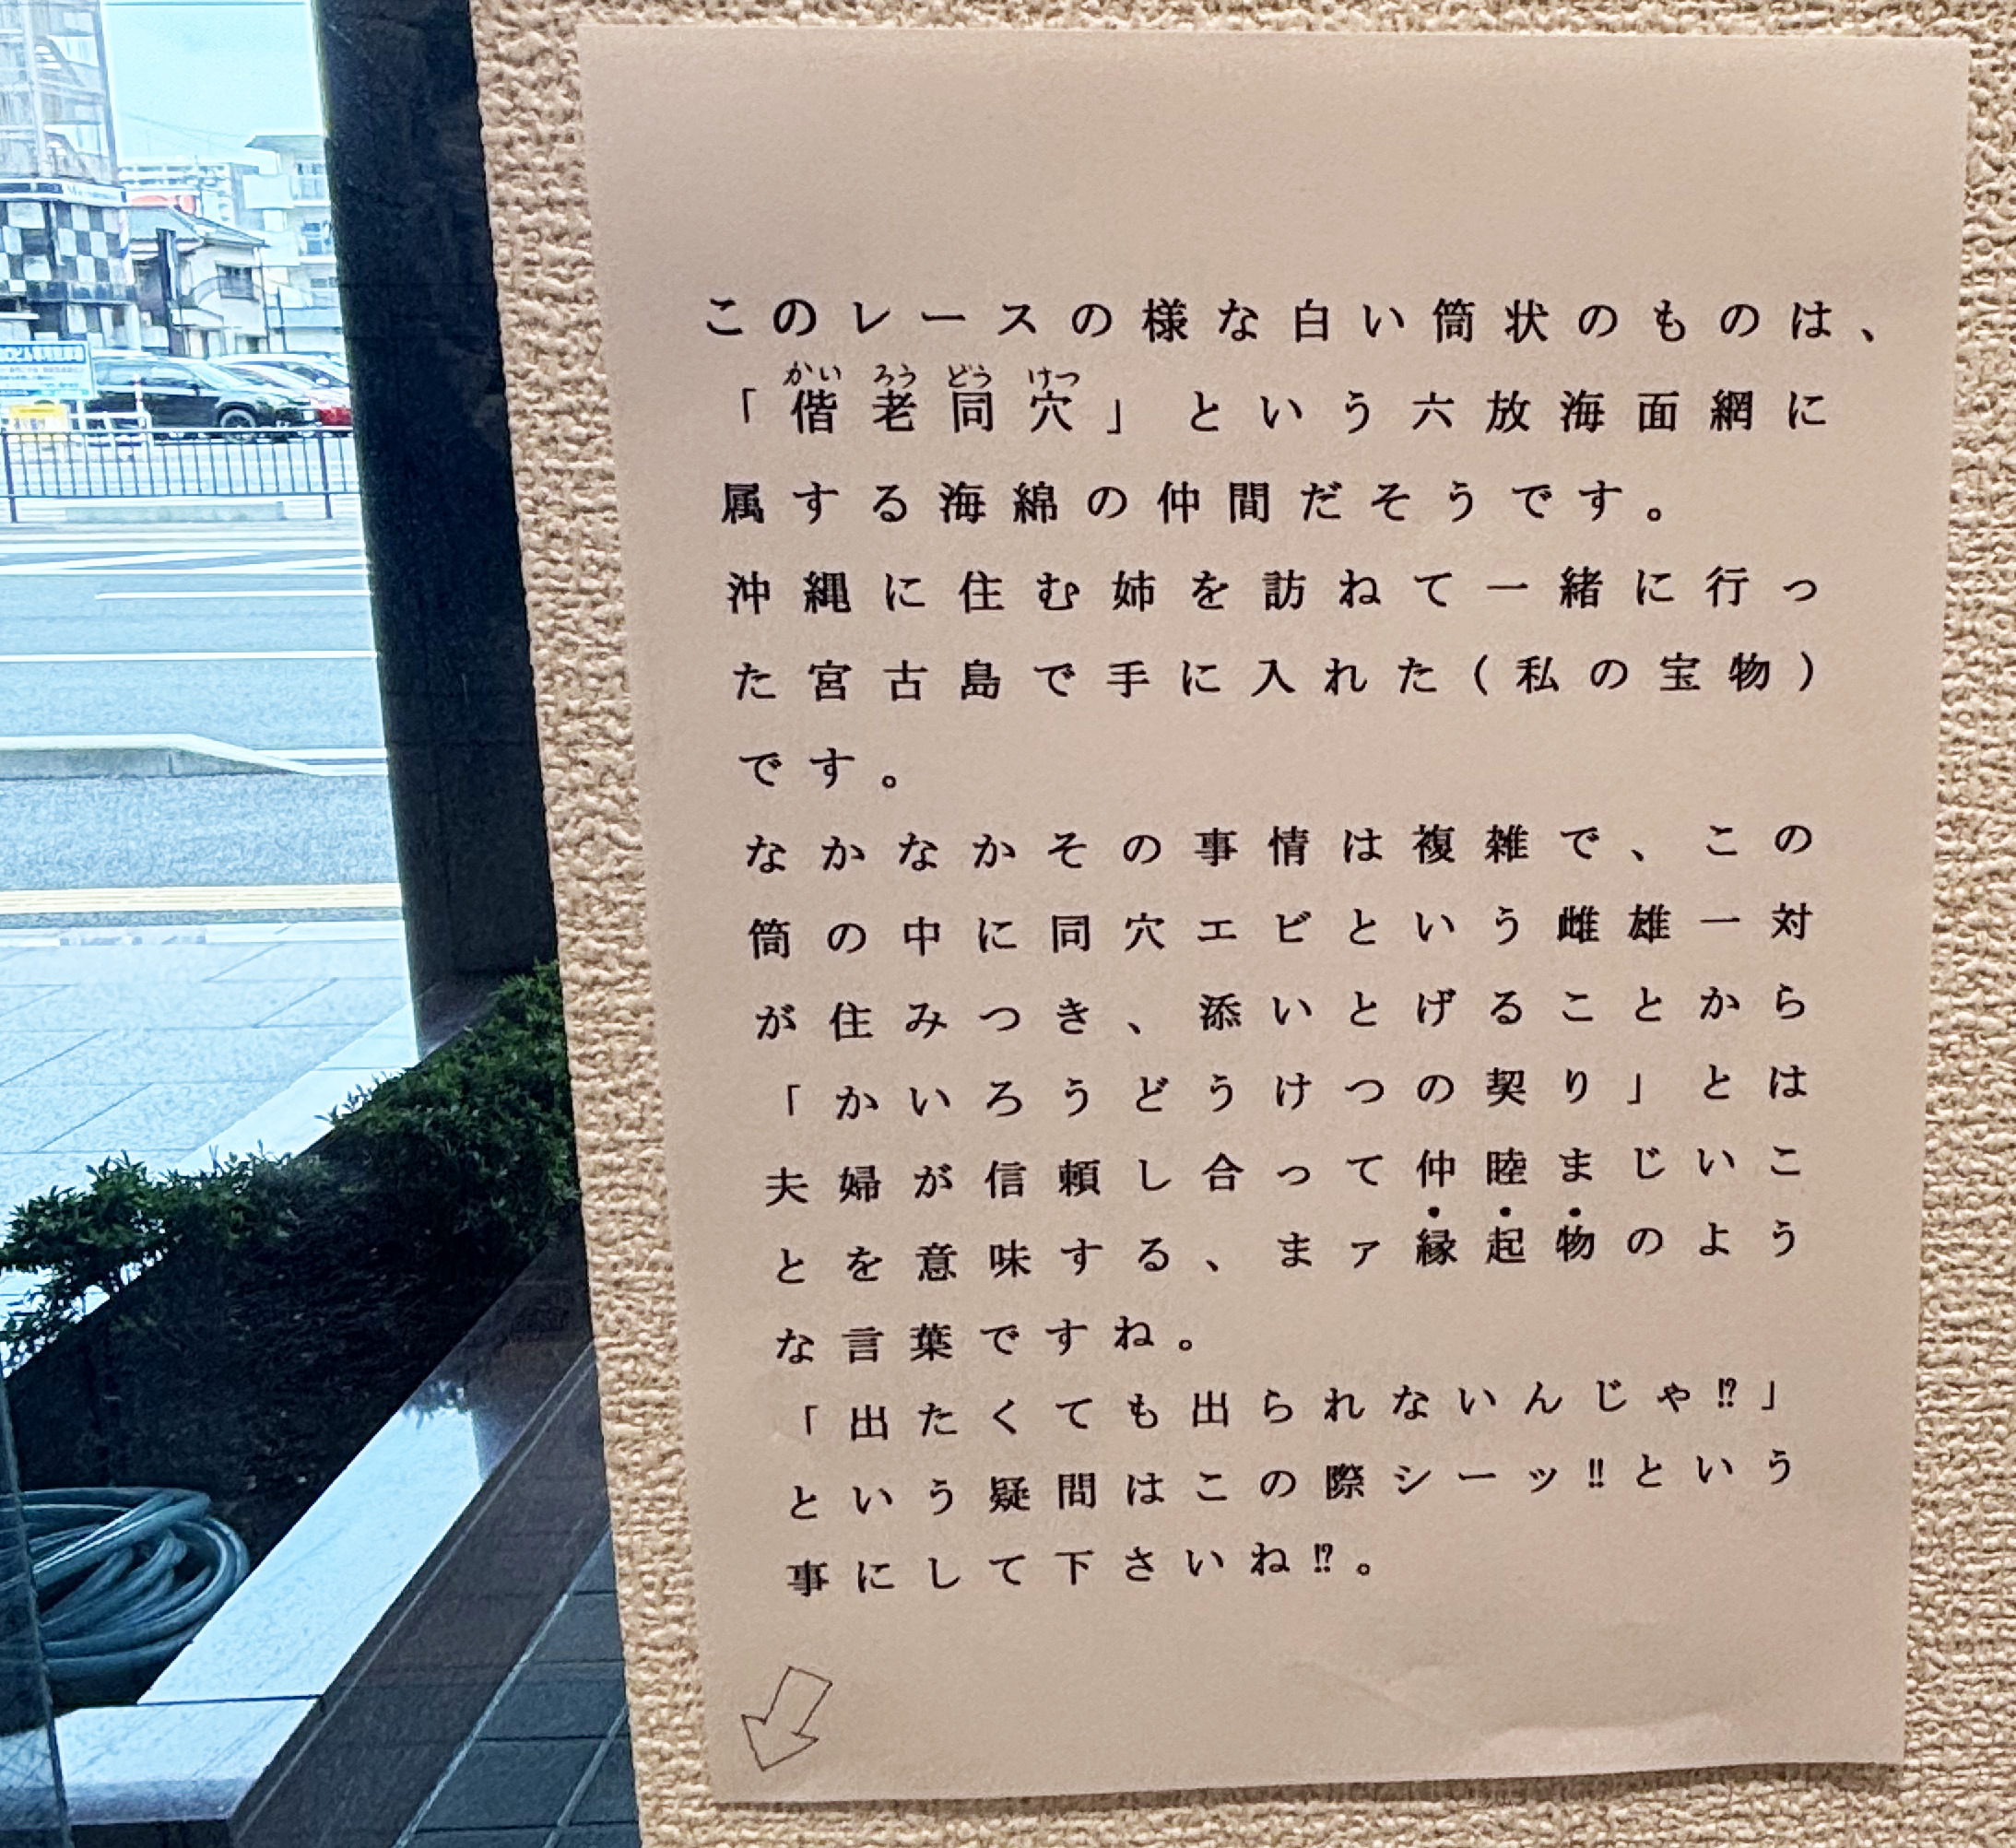 このレースの様な白い筒状のものは、
「偕老同穴」という六放海面網に
かい ろう どう けつ
属する海綿の仲間だそうです。
沖縄に住む姉を訪ねて一緒に行っ
た宮古島で手に入れた(私の宝物)
です。
なかなかその事情は複雑で、この
筒の中に同穴エビという雌雄一対
が住みつき、添いとげることから
「かいろうどうけつの契り」とは
夫婦が信頼し合って仲睦まじいこ
とを意味する、まァ縁起物のよう
な言葉ですね。
「出たくても出られないんじゃ⁉」
という疑問はこの際シーッ‼という
事にして下さいね⁉。